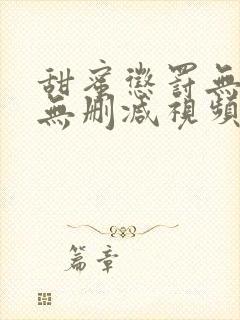 甜蜜懲罰無
無刪減視頻
篇章